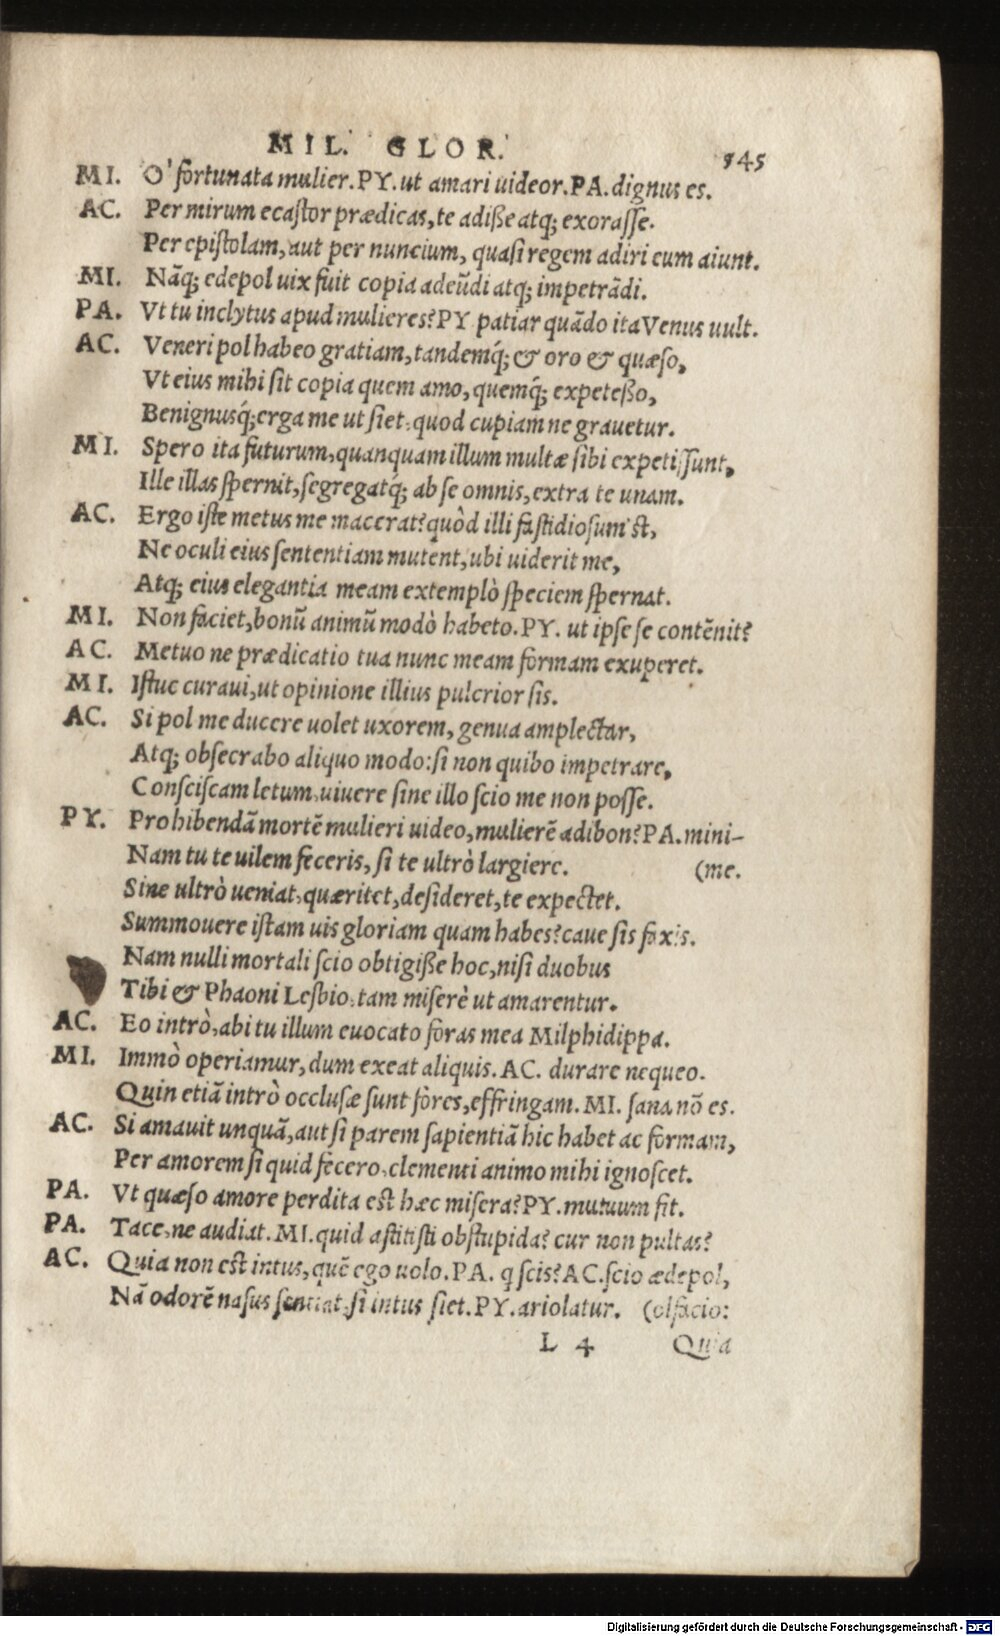 MIL. GLOR. 545
MI. O' fortunata mulier. PY. ut amari uideor. PA. dignus es.
AC. Per mirum ecastor prædicas, te adiße atq; exorasse.
Per epistolam, aut per nuncium, quasi regem adiri eum aiunt.
MI. Nāq; edepol uix fuit copia adeūdi atq; impetrādi.
PA. Vt tu inclytus apud mulieres? PY patiar quādo ita Venus uult.
AC. Veneri pol habeo gratiam, tandemq́; & oro & quæso,
Vt eius mihi sit copia quem amo, quemq́; expeteßo,
Benignusq́; erga me ut siet, quod cupiam ne grauetur.
MI. Spero ita futurum, quanquam illum multæ sibi expetissunt,
Ille illas spernit, segregatq́; ab se omnis, extra te unam.
AC. Ergo iste metus me macerat? quòd illi fastidiosum'st,
Ne oculi eius sententiam mutent, ubi uiderit me,
Atq; eius elegantia meam extemplò speciem spernat.
MI. Non faciet, bonū animū modò habeto. PY. ut ipse se contēnit?
AC. Metuo ne prædicatio tua nunc meam formam exuperet.
MI. Istuc curaui, ut opinione illius pulcrior sis.
AC. Si pol me ducere uolet uxorem, genua amplectar,
Atq; obsecrabo aliquo modo: si non quibo impetrare,
Consciscam letum, uiuere sine illo scio me non posse.
PY. Prohibendā mortē mulieri uideo, mulierē adibon? PA. mini-
Nam tu te uilem feceris, si te ultrò largiere. (me.
Sine ultrò ueniat, quæritet, desideret, te expectet.
Summouere istam uis gloriam quam habes? caue sis faxis.
Nam nulli mortali scio obtigiße hoc, nisi duobus
Tibi & Phaoni Lesbio, tam miserè ut amarentur.
AC. Eo intrò, abi tu illum euocato foras mea Milphidippa.
MI. Immò operiamur, dum exeat aliquis. AC. durare nequeo.
Quin etiā intrò occlusæ sunt fòres, effringam. MI. sana nō es.
AC. Si amauit unquā, aut si parem sapientiā hic habet ac formam,
Per amorem si quid fecero, clementi animo mihi ignoscet.
PA. Vt quæso amore perdita est hæc misera? PY. mutuum fit.
PA. Tace, ne audiat. MI. quid astitisti obstupida? cur non pultas?
AC. Quia non est intus, quē ego uolo. PA. q scis? AC. scio ædepol,
Nā odorē nasus sentiat, si intus siet. PY. ariolatur. (olfacio:
L 4 Quia
Digitalisierung gefördert durch die Deutsche Forschungsgemeinschaft - DFG